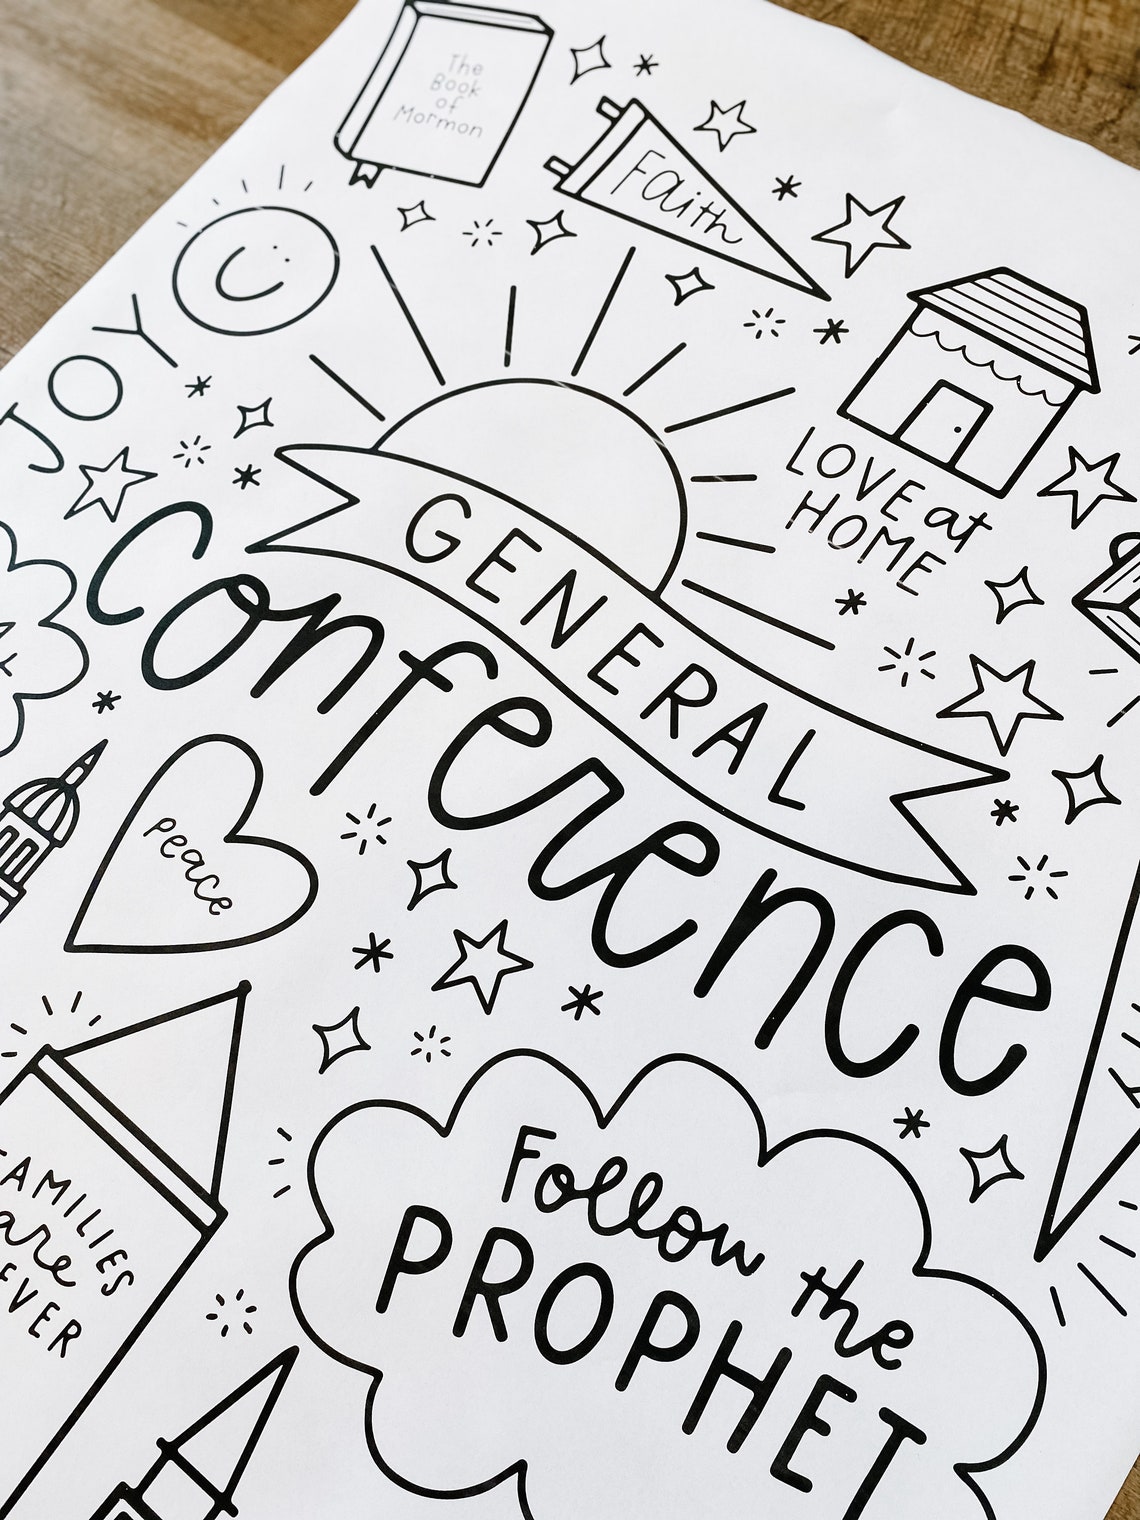 The
Book
of
Mormon
Faith
JOY
LOVE at
HOME
GENERAL
Conference
peace
FAMILIES
are
EVER
Follow the
PROPHET